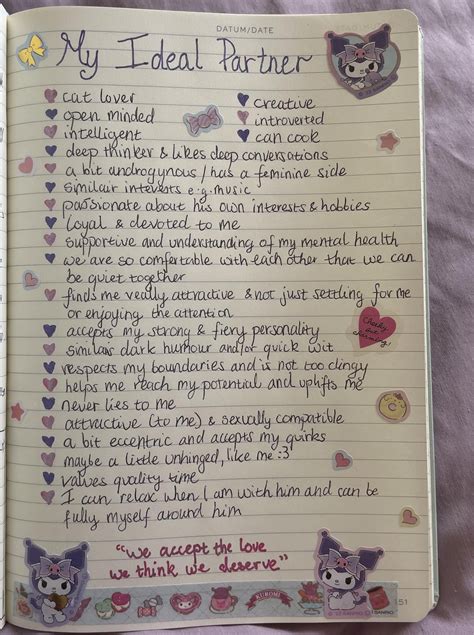 DATUM/DATE
My Ideal Partner
cat lover
creative
open minded
introverted
intelligent
can cook
deep thinker & likes deep conversations
a bit androgynous / has a feminine side
similair interests e.g. music
passionate about his own interests & hobbies
loyal & devoted to me
supportive and understanding of my mental health
we are so comfortable with each other that we can
be quiet together
finds me really attractive & not just settling for me
or enjoying the attention
accepts my strong & fiery personality
similar dark humour and/or quick wit
Cheeky but charming!
respects my boundaries and is not too clingy
helps me reach my potential and uplifts me
never lies to me
attractive (to me) & sexually compatible
a bit eccentric and accepts my quirks
maybe a little unhinged, like me :3
values quality time
I can relax when I am with him and can be
fully myself around him
"we accept the love
we think we deserve"
KUROMI
151